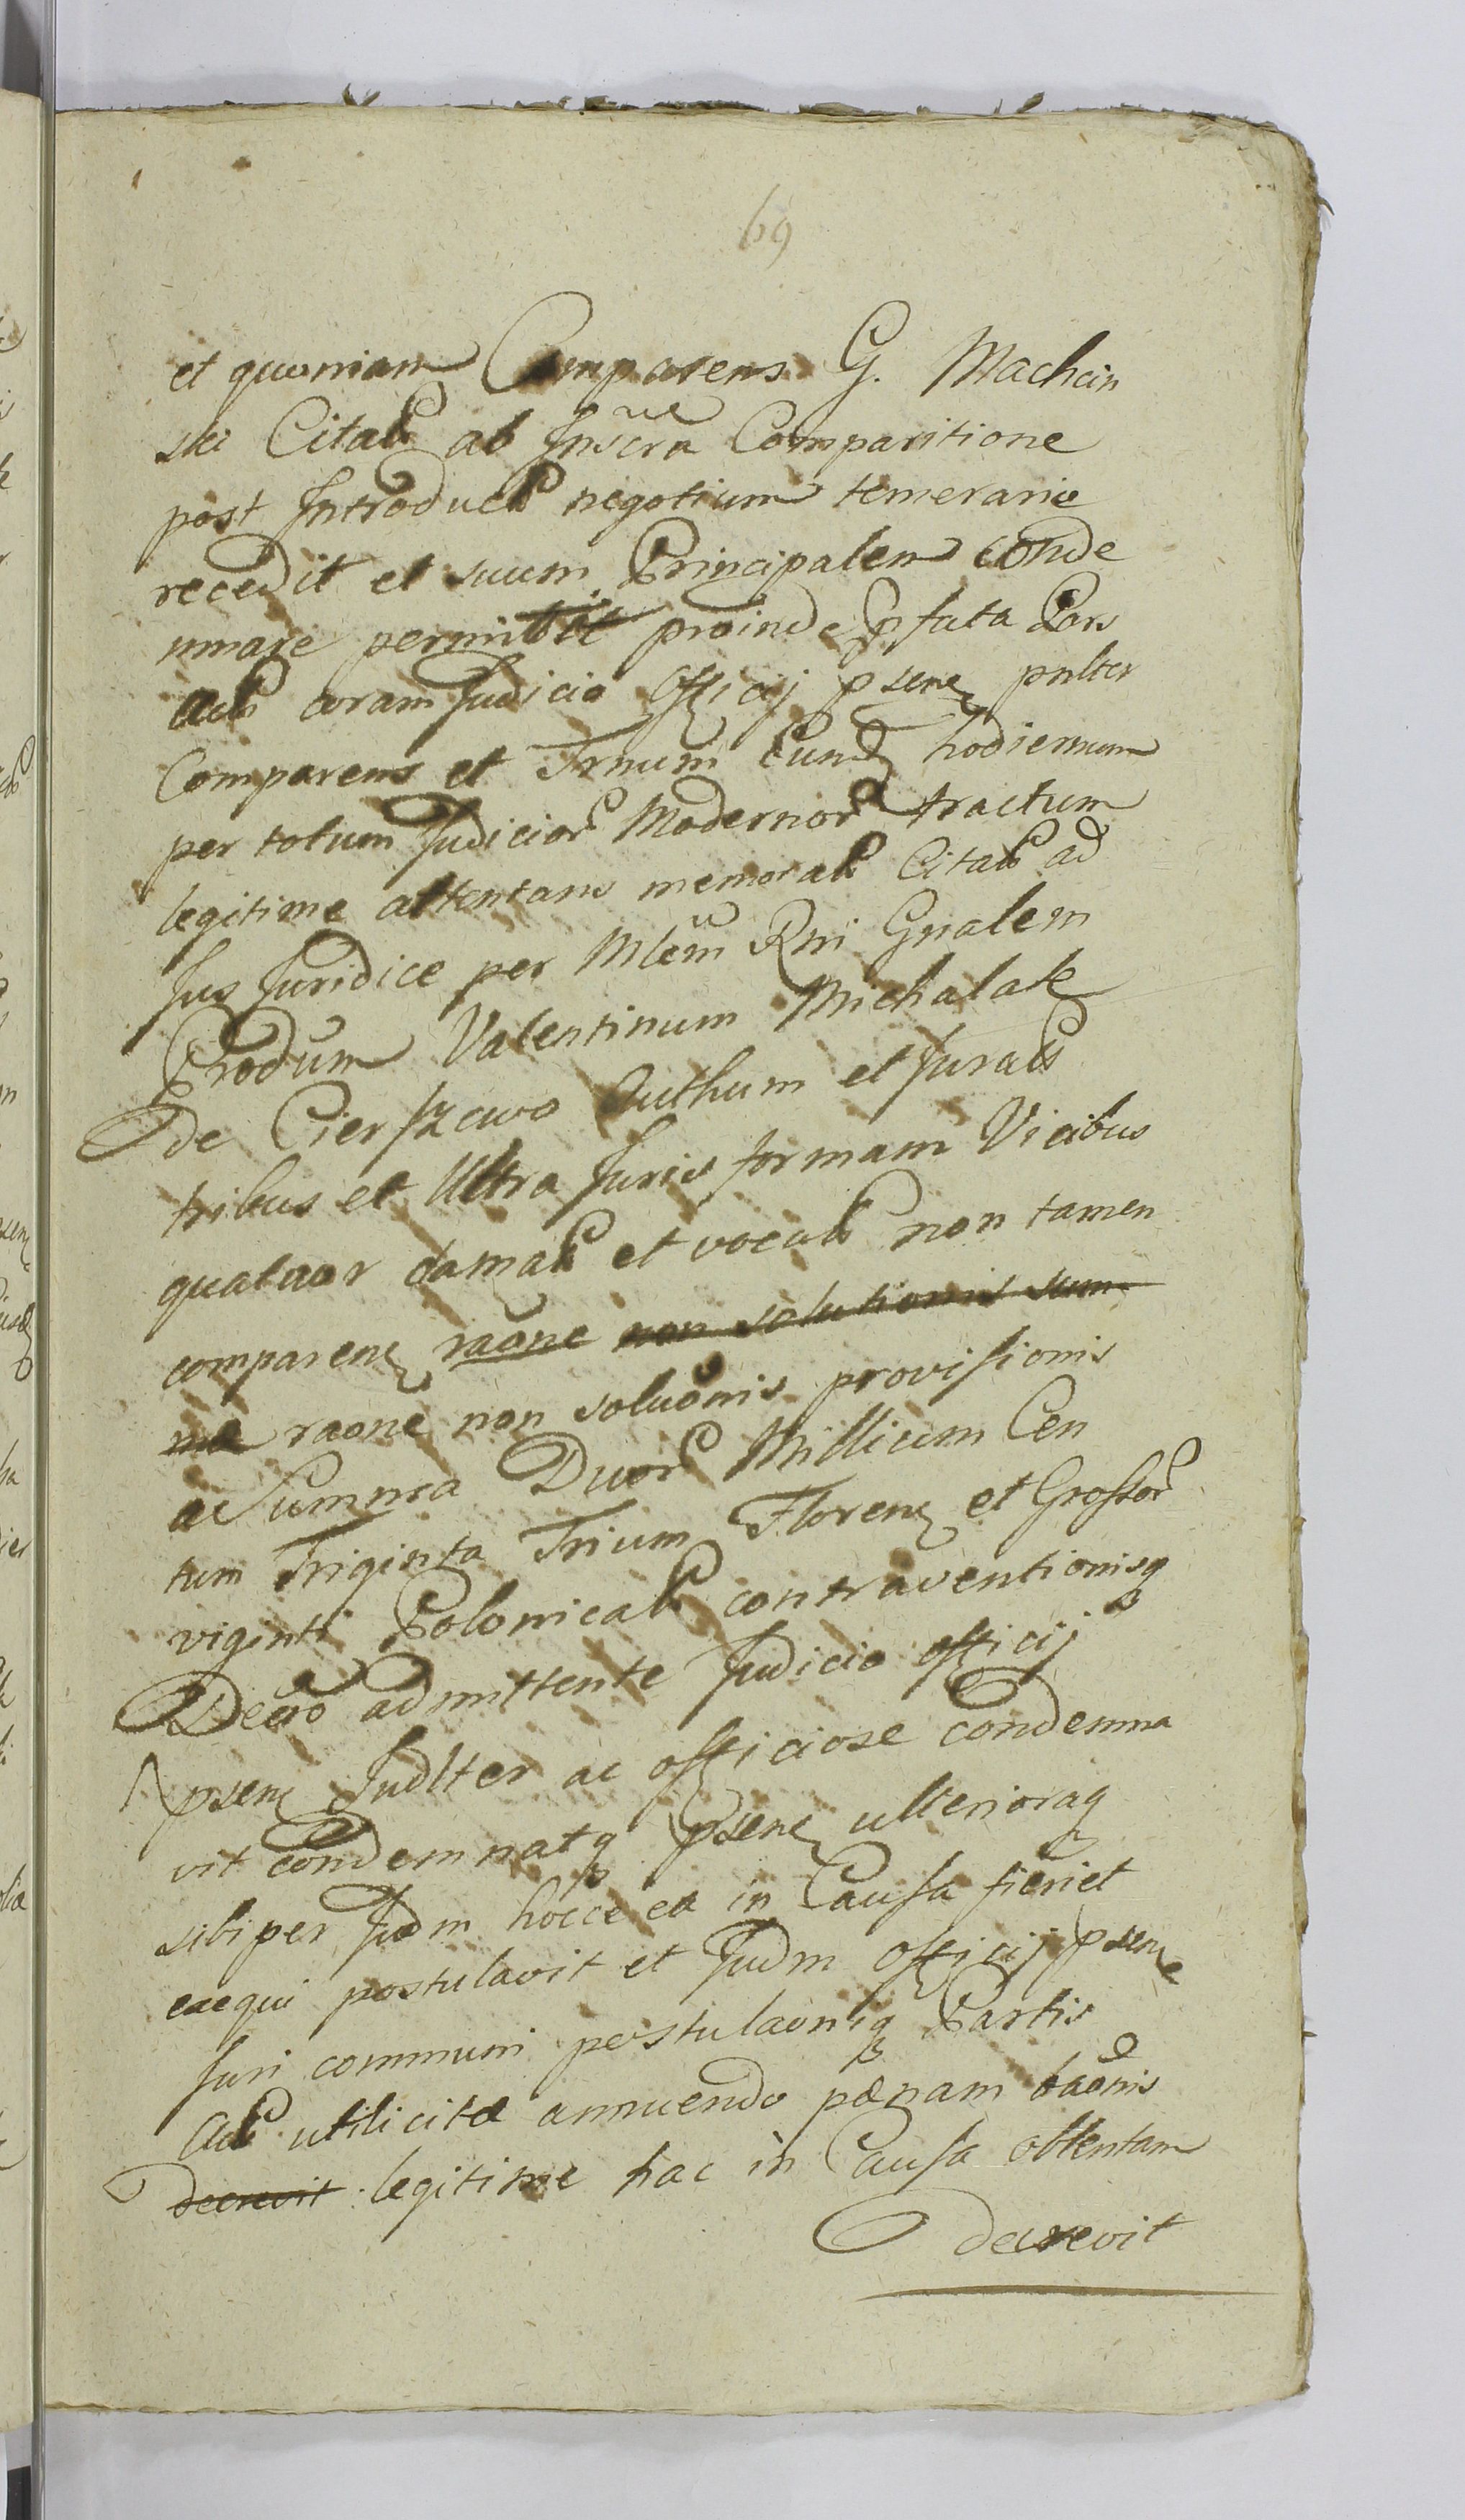 69
et quoniam Comparens G. Machcin
ski Citatus ab Inscra Comparitione
post Introduct negotium temerarie
recedit et suum Principalem conde
mnare permittit proinde pfata Pars
Act coram Judicio Officij psene pnlter
Comparens et Trnum Eund hodiernum
per totum Judicior Modernor tractum
legitime attentans memorat Citat ad
Jus Juridice per Mlem Rni Gnalem
Produm Valentinum Michalak
de Cierszewo Authum et Jurat
tribus et Ultra Juris formam Vicibus
quatuor clamat et vocat non tamen
comparen raone non solutionis sum
mæ raone non soluonis provisionis
a Summa Duor Millium Cen
tum Triginta Trium Floren et Grossor
viginti Polonical contraventionisq
Decro admittente Judicio officij
psene Judlter ac officiose condemna
vit condemnatq psene ulterioraq
sibi per Judm hocce ea in Causa fieri et
exequi postulavit et Judm Officij psene
Juri communi postulaoniq Partis
Act utilicitæ annuendo pænam baonis
decrevit legitime hac in Causa obtentam
decrevit